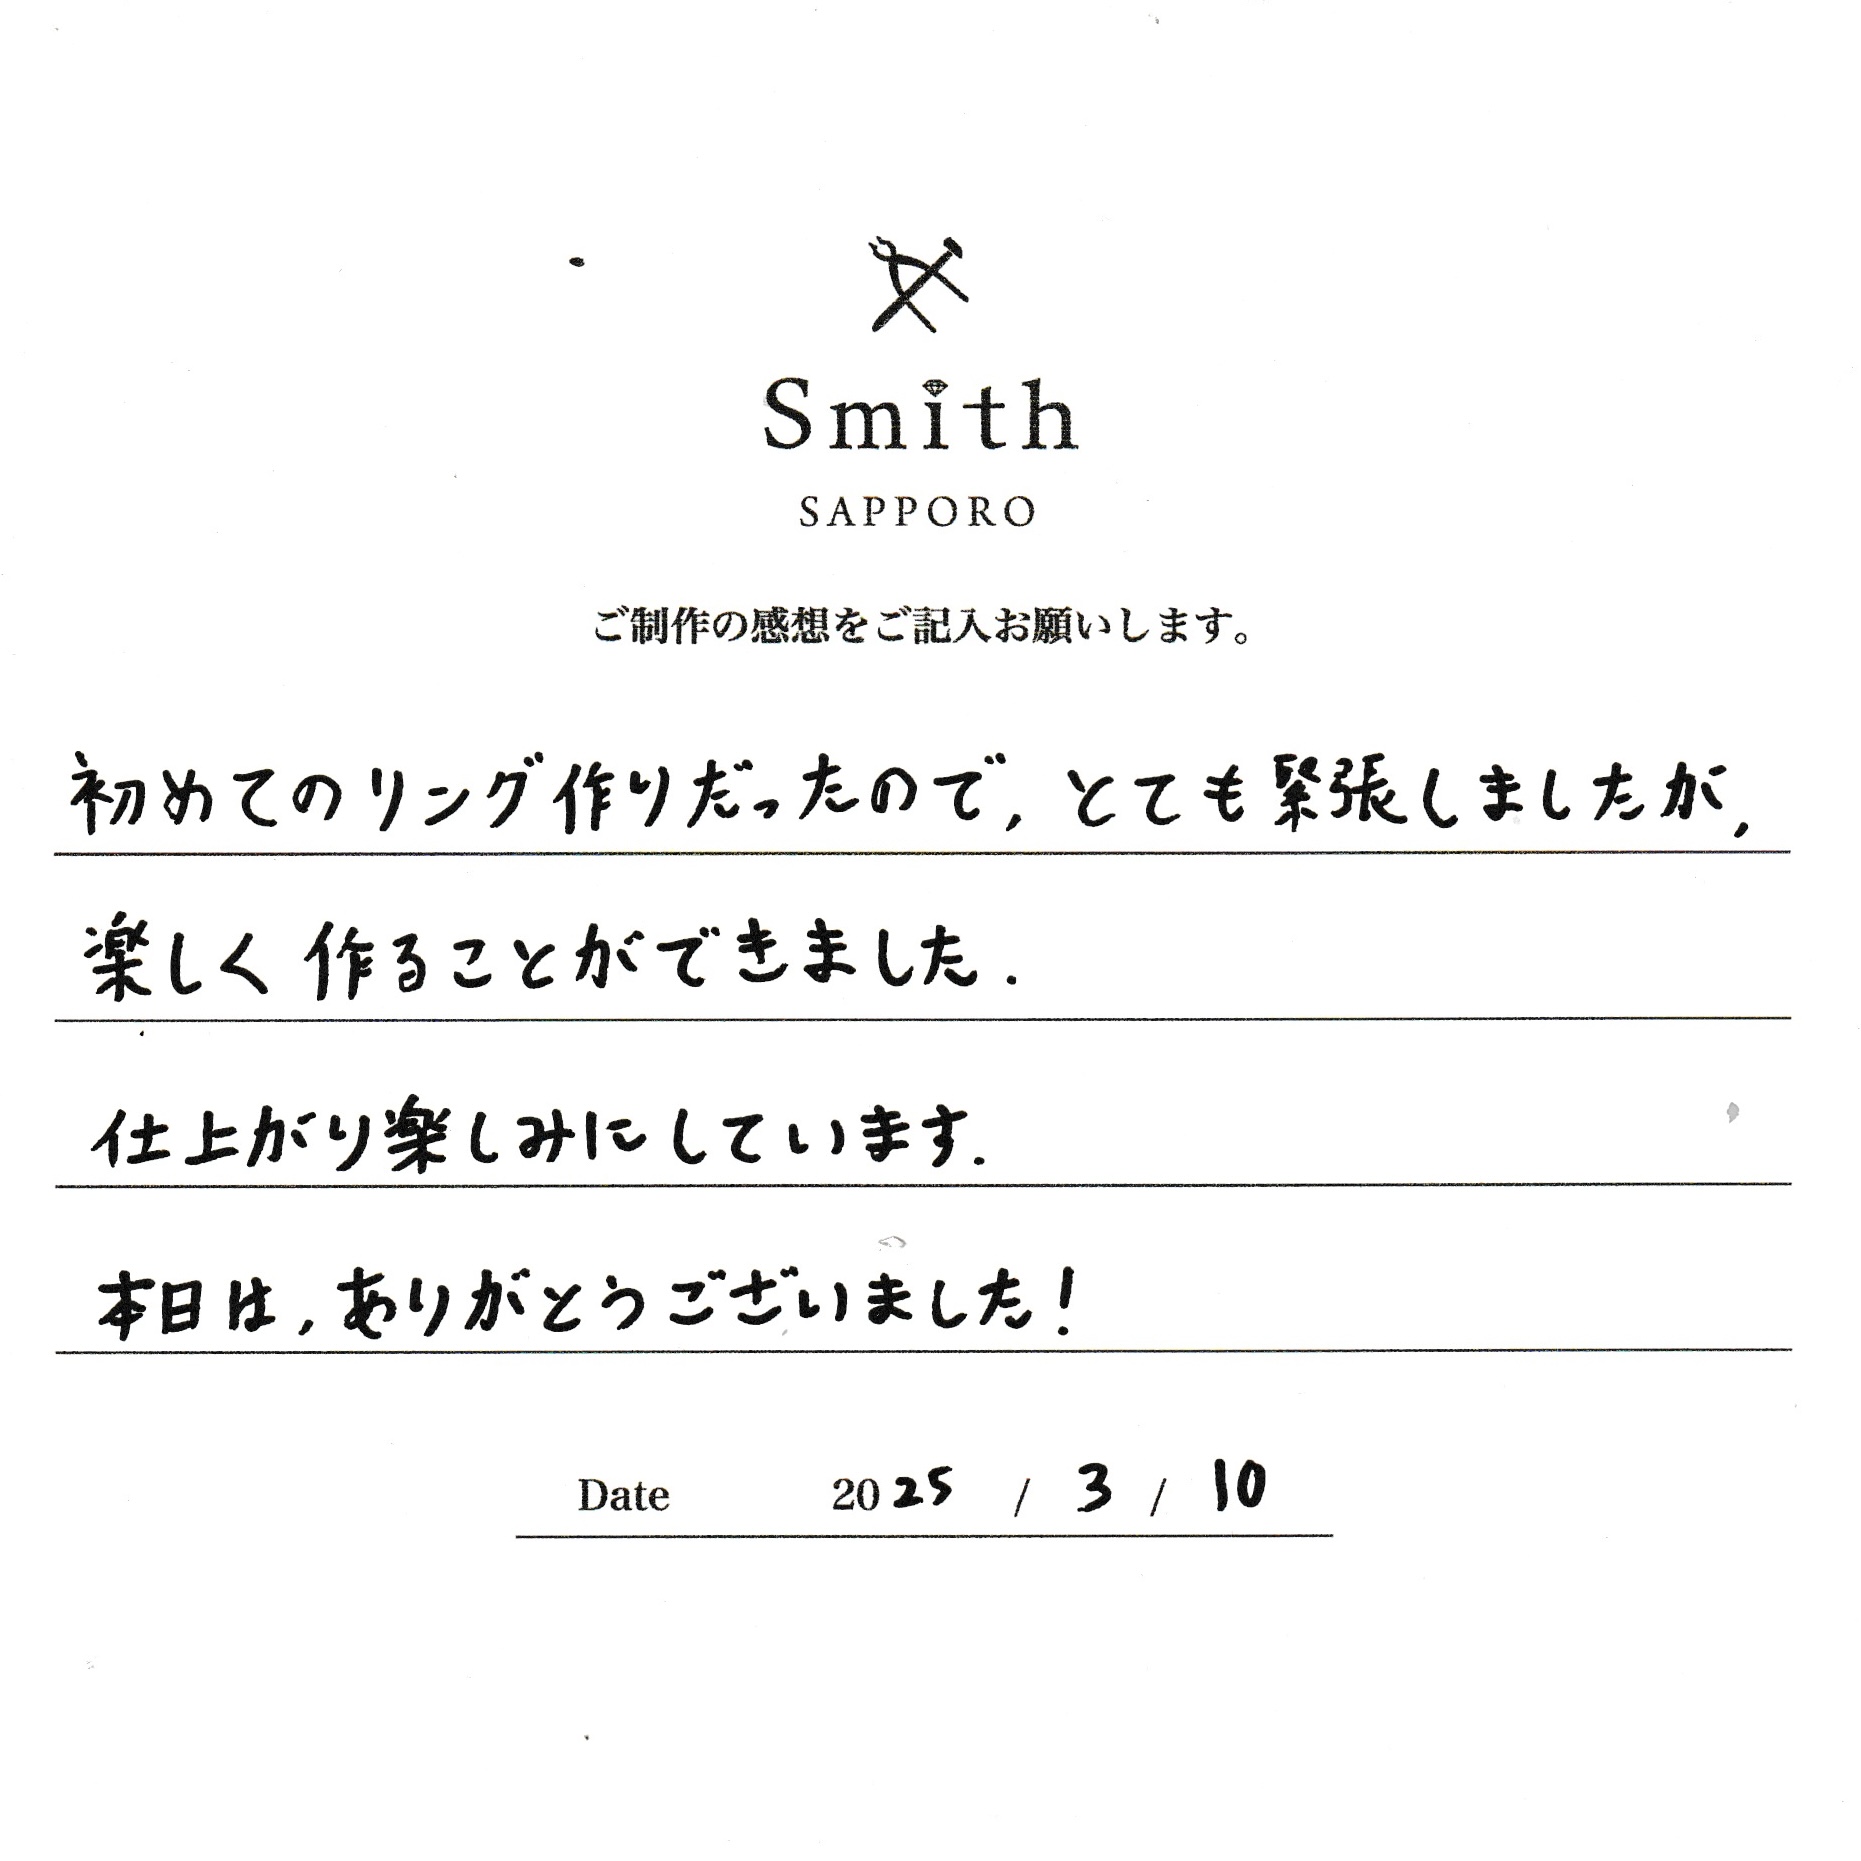 Smith
SAPPORO
ご制作の感想をご記入お願いします。
初めてのリング作りだったので, とても緊張しましたが,
楽しく作ることができました.
仕上がり楽しみにしています.
本日は, ありがとうございました!
Date 2025 / 3 / 10